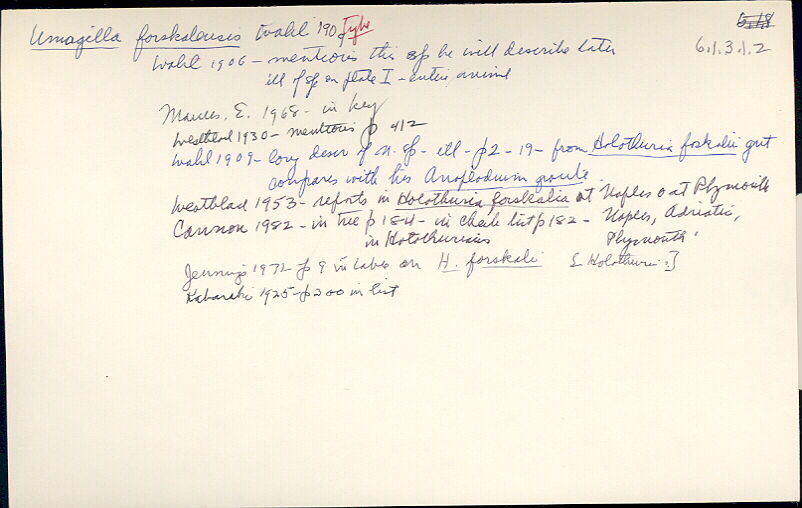 Umagilla forskalensis Wahl 1909 Type
6.18
6.1.3.1.2
Wahl 1906 - mentions this sp he will describe later
ill of sp on plate I - entire animal
Marcus, E. 1968 - in key
Westblad 1930 - mentions p 412
Wahl 1909 - long descr of n. sp - ill - p 2 - 19 - from Holothuria foskalii gut
compares with his Anoplodium gracile
Westblad 1953 - reports in Holothuria forskalia at Naples & at Plymouth
Cannon 1982 - in tree p 184 - in check list p 182 - Naples, Adriatic,
in Holothurians Plymouth
Jennings 1971 p 9 in table on H. forskali [Holothuria]
Kaburaki 1925 - p 200 in list